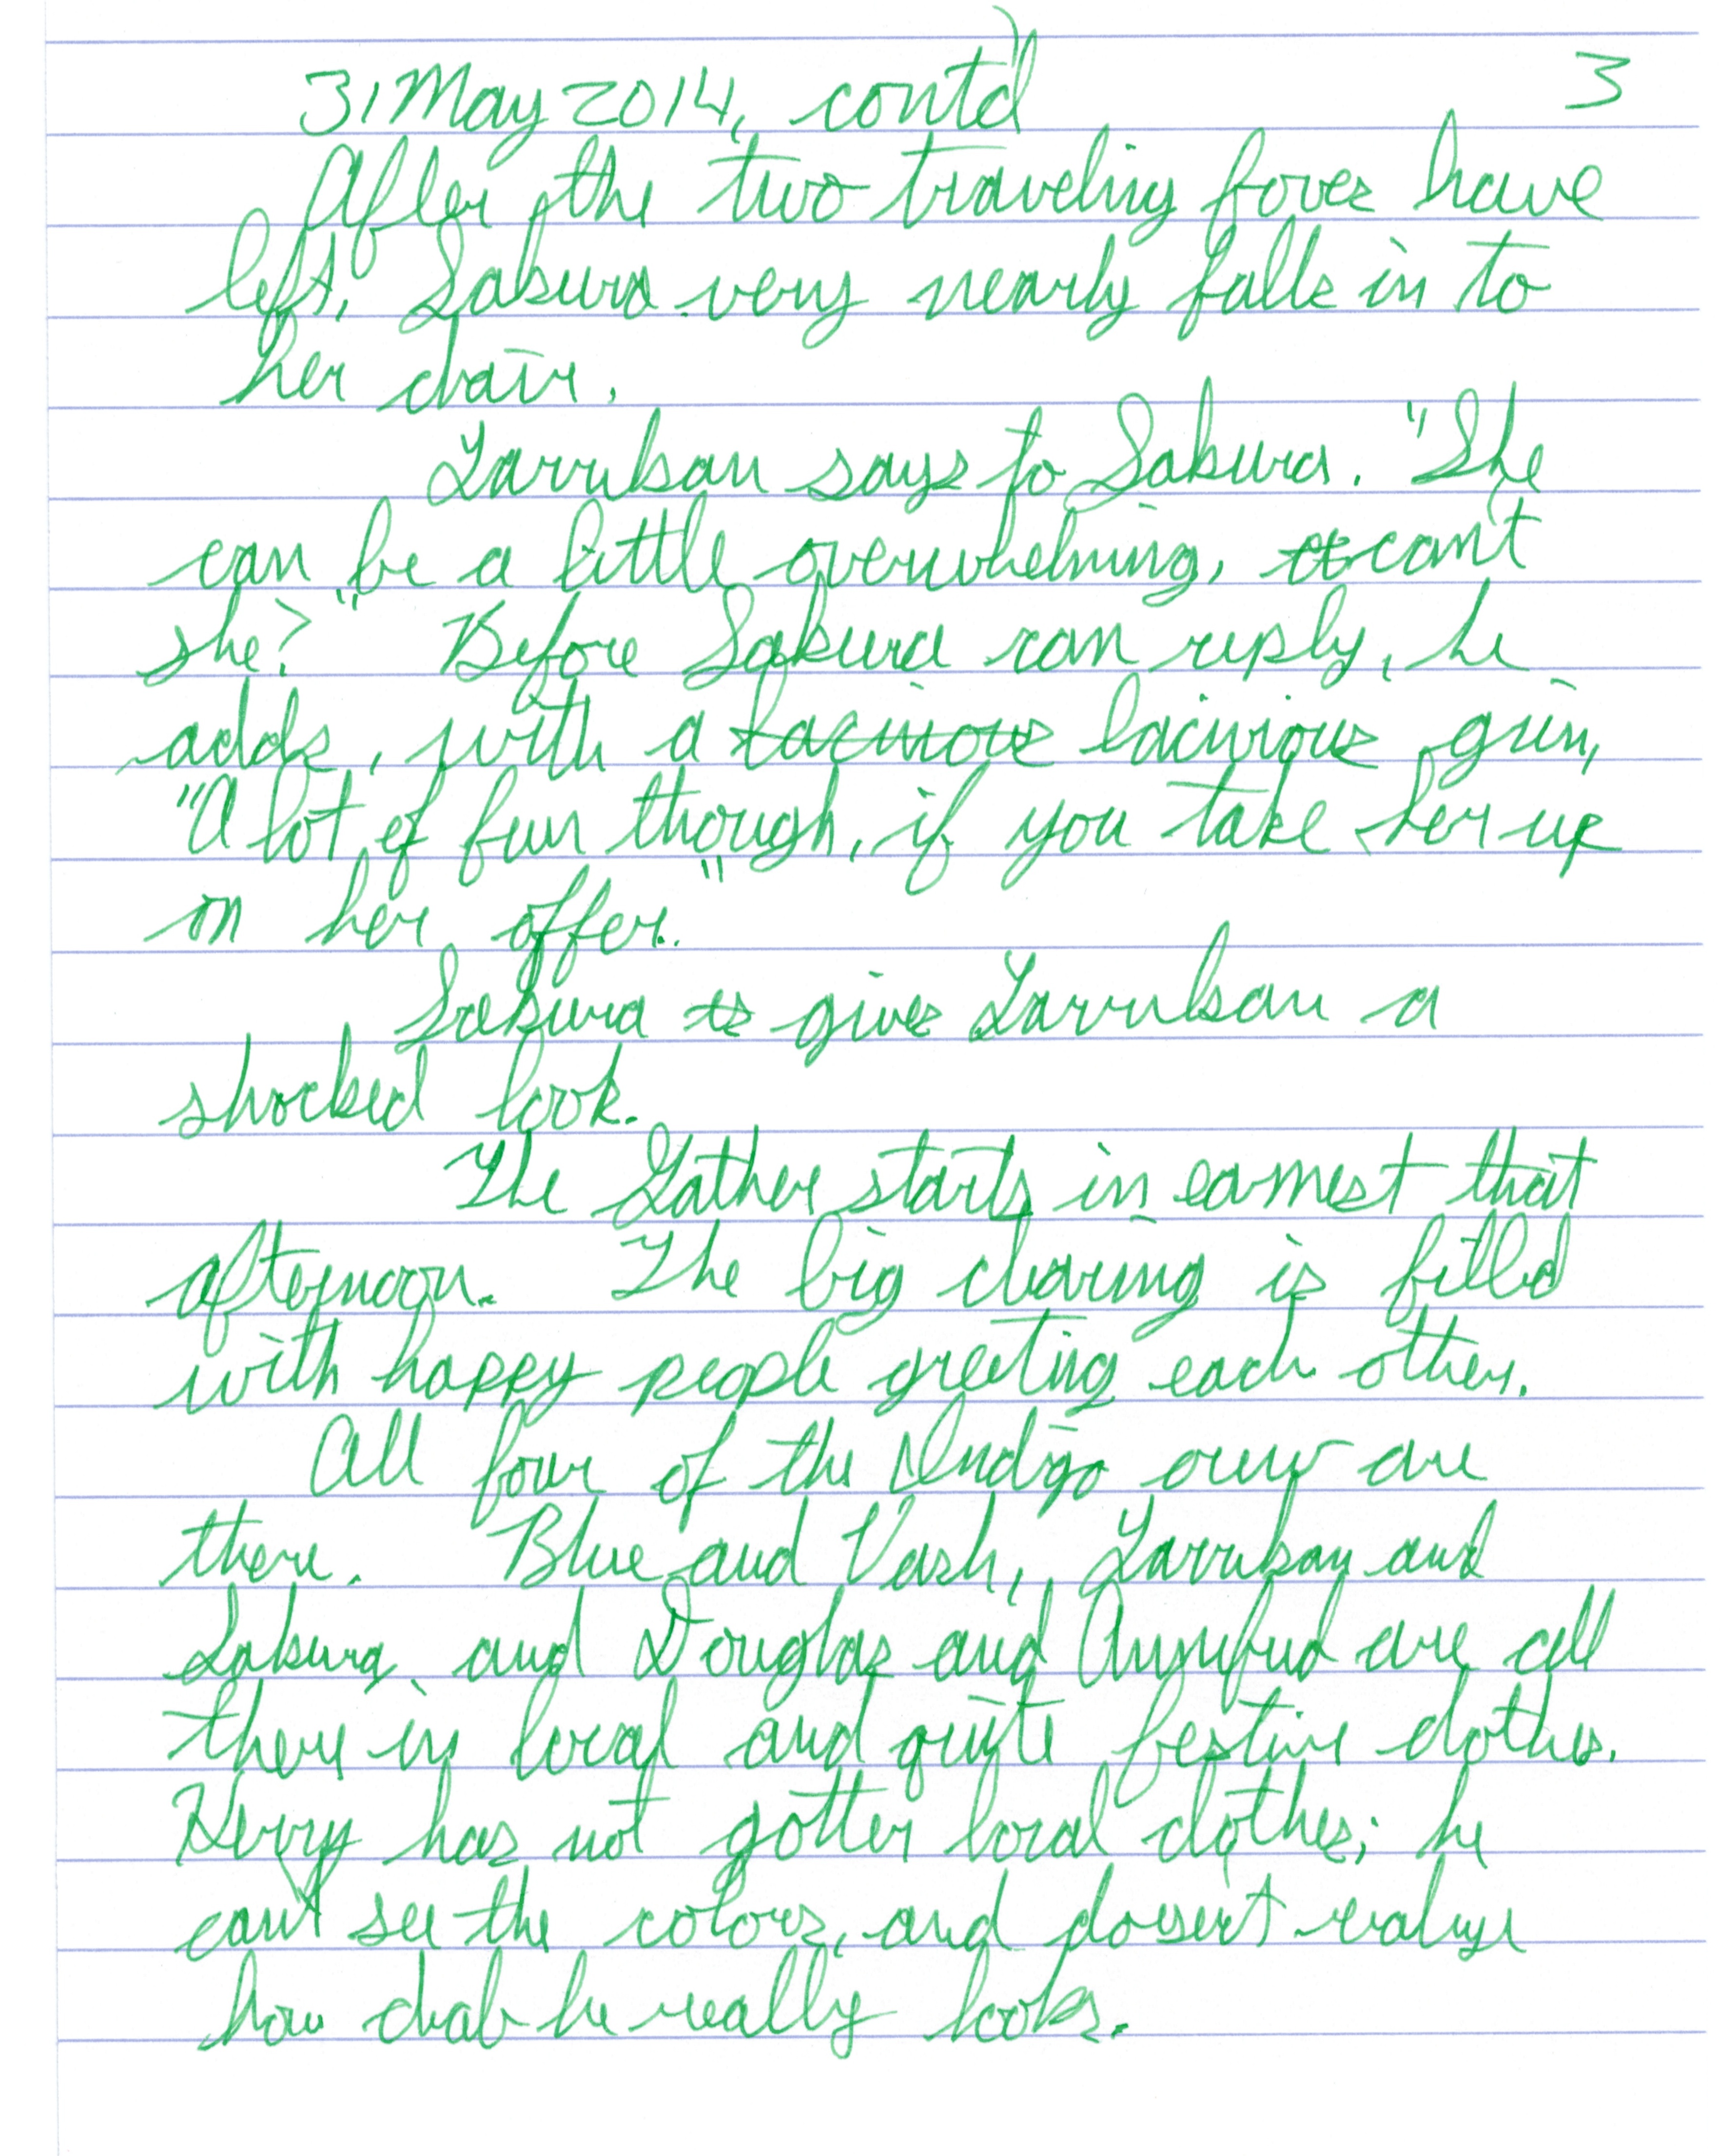 31 May 2014, cont'd 3
After the two traveling foxes have
left, Sakura very nearly falls in to
her chair.
Yarruksan says to Sakura. "She
can be a little overwhelming, can't
she?" Before Sakura can reply, he
adds, with a lacivious lacivious grin,
"A lot of fun though, if you take her up
on her offer."
Sakura is gives a
shocked look.
The Gather starts in earnest that
afternoon. The big clearing is filled
with happy people greeting each other.
All four of the Indigo crew are
there. Blue and Vash, and
Sakura, and Douglas and are all
there in local and quite festive clothes.
Kerry has not gotten local clothes; he
can't see the colors, and doesn't realize
how drab he really looks.